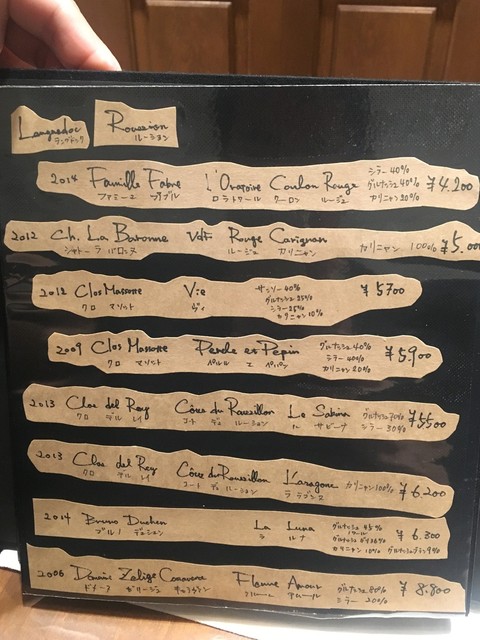 Languedoc
ラングドック
Roussion
ルーション
2014 Famille Fabre L'Oratoire Coulon Rouge シラー 40% グルナッシュ 40% カリニャン 20% ¥4,200
ファミーユ ファブル ロラトワール クーロン ルージュ
2012 Ch. La Baronne VdF Rouge Carignan カリニャン 100% ¥5,000
シャトー ラ バロンヌ ルージュ カリニャン
2012 Clos Massotte Vie サンソー 40% グルナッシュ 25% シラー 25% カリニャン 10% ¥5700
クロ マソット ヴィ
2009 Clos Massotte Perde es Pepin グルナッシュ 40% シラー 40% カリニャン 20% ¥5900
クロ マソット ペルル エ ペパン
2013 Clos del Rey Côtes du Roussillon Le Sabina グルナッシュ 70% シラー 30% ¥5500
クロ デル レイ コート デュ ルーション ル サビーナ
2013 Clos del Rey Côtes du Roussillon L'aragone カリニャン 100% ¥6,200
クロ デル レイ コート デュ ルーション ラ ラゴンヌ
2014 Bruno Duchen La Luna カリニャン 10% ¥6,300
ブルノ デュシェン ラ ルナ
2006 Domaine Zelige Caravent Fleuve Amour グルナッシュ 80% シラー 20% ¥8,800
ドメーヌ ゼリージュ キャラヴァン フルーヴ アムール